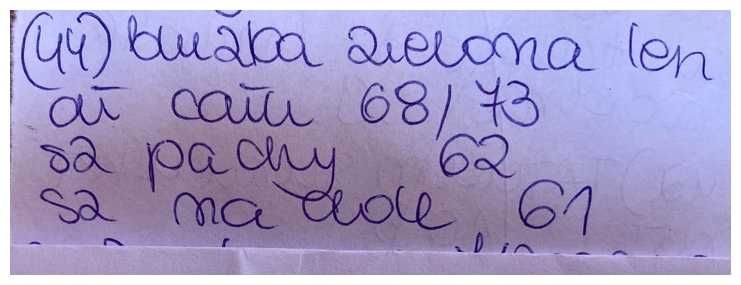 (44) bluzka zielona len
dł całk 68/73
sz pachy 62
sz na dole 61